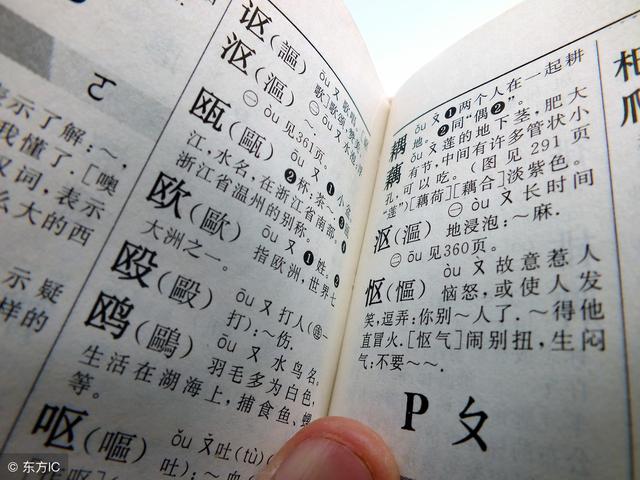 ㄛ
表示了解：～，
我懂了．［噢
叹词，表示
么大的西
示疑
样的
讴（謳） ōu ㄡ 歌唱
歌］歌颂
沤（漚） ㊀ ōu ㄡ 水泡
～．
㊁ òu 见361页．
瓯（甌） ōu ㄡ ❶小
❷杯：茶～．
江，水名，在浙江省南部．
浙江省温州的别称．
欧（歐） ōu ㄡ ❶姓．❷
指欧洲，世界七
大洲之一．
殴（毆） ōu ㄡ 打人（㊣一
打）：～伤．
鸥（鷗） ōu ㄡ 水鸟名．
羽毛多为白色，
生活在湖海上，捕食鱼、螺
等．
呕（嘔） ǒu ㄡ吐（tù）（
吐）：～血（
耦 ǒu ㄡ ❶两个人在一起耕
地．❷同“偶❷”．
藕 ǒu ㄡ莲的地下茎，肥大
有节，中间有许多管状小
孔，可以吃．（图见291页
“莲”）［藕荷］［藕合］淡紫色．
沤（漚） ㊀ òu ㄡ 长时间
地浸泡：～麻．
㊁ ōu 见360页．
怄（慪） òu ㄡ 故意惹人
恼怒，或使人发
笑，逗弄：你别～人了．～得他
直冒火．［怄气］闹别扭，生闷
气：不要～～．
P ㄆ
柏
爬
© 东方IC